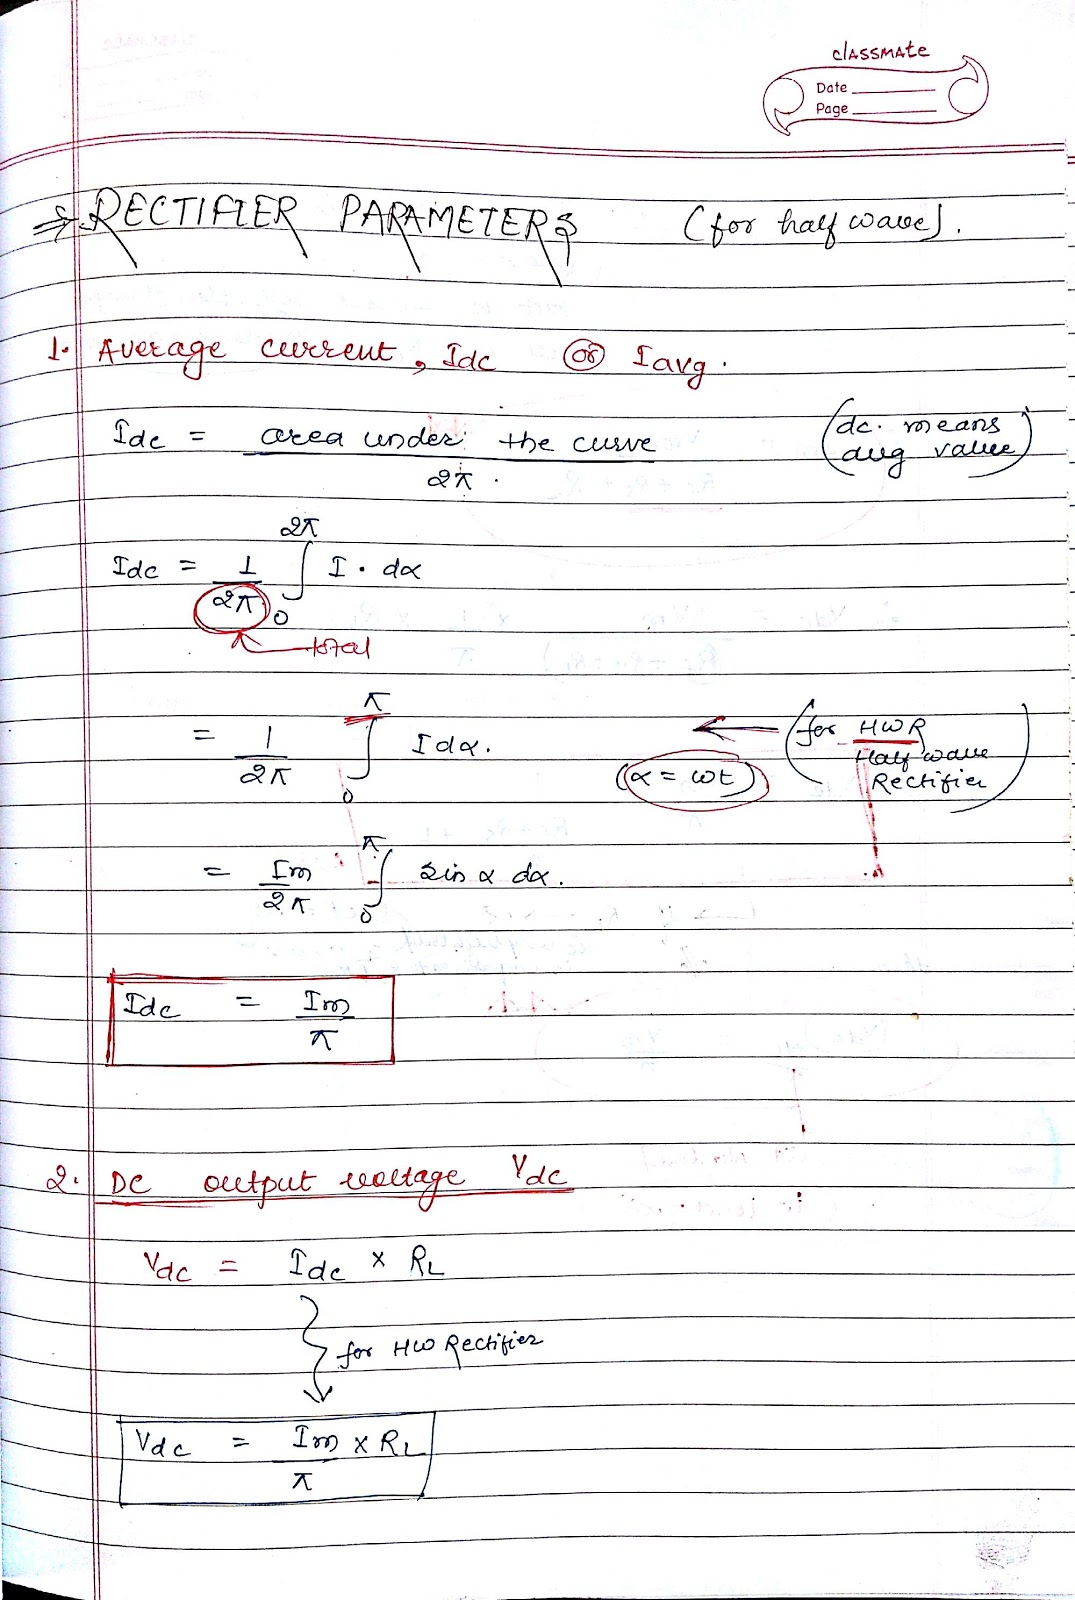 classmate
Date
Page
⇒ RECTIFIER PARAMETERS (for half wave).
1. Average current, Idc (or) Iavg.
Idc = area under the curve / 2π. (dc. means avg value)
Idc = 1/2π ∫₀^2π I · dα
total
= 1/2π ∫₀^π I dα. ← (for HWR Half wave Rectifier)
(α = ωt)
= Im/2π ∫₀^π sin α dα.
Idc = Im/π
2. DC output voltage Vdc
Vdc = Idc × RL
for HW Rectifier
Vdc = Im/π × RL